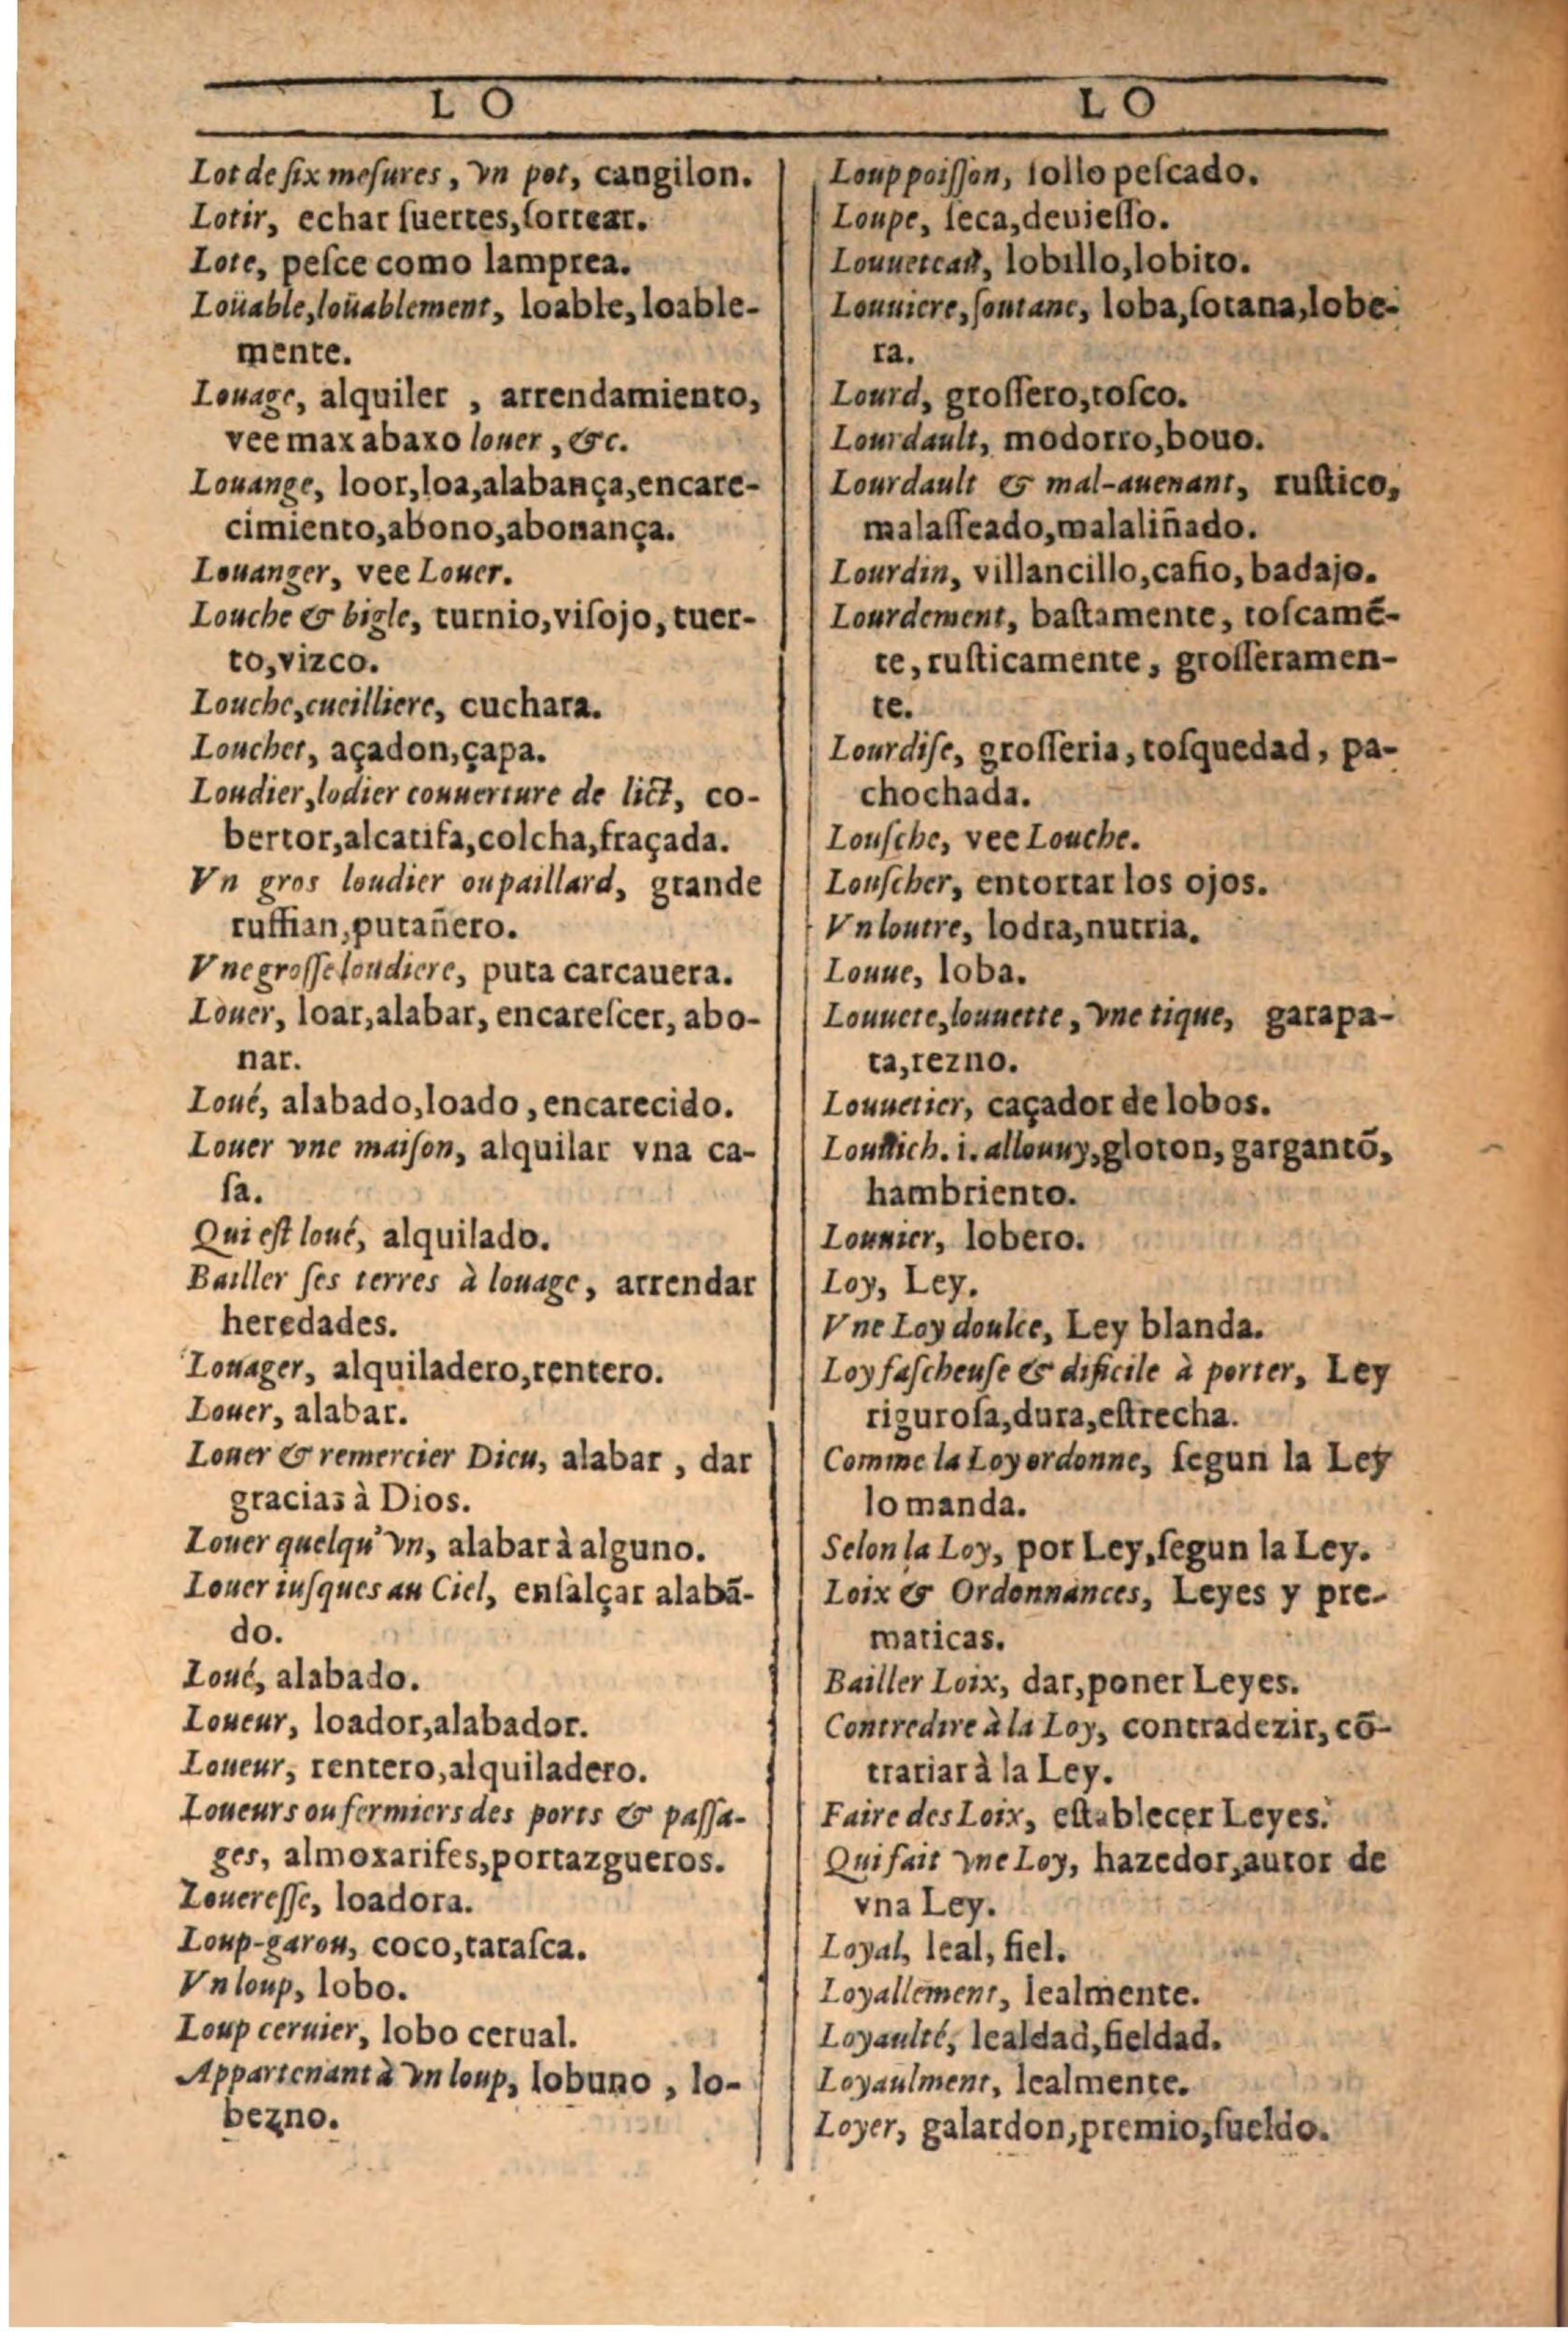 L O
Lot de ſix meſures, vn pot, cangilon.
Lotir, echar ſuertes, ſortear.
Lote, peſce como lamprea.
Loüable, loüablement, loable, loable-
mente.
Louage, alquiler , arrendamiento,
vee max abaxo louer , &c.
Louange, loor, loa, alabança, encare-
cimiento, abono, abonança.
Louanger, vee Louer.
Louche & bigle, turnio, viſojo, tuer-
to, vizco.
Louche, cueilliere, cuchara.
Louchet, açadon, çapa.
Loudier, lodier couuerture de lict, co-
bertor, alcatifa, colcha, fraçada.
Vn gros loudier ou paillard, grande
ruffian, putañero.
Vne groſſe loudiere, puta carcauera.
Louer, loar, alabar, encareſcer, abo-
nar.
Loué, alabado, loado , encarecido.
Louer vne maiſon, alquilar vna ca-
ſa.
Qui eſt loué, alquilado.
Bailler ſes terres à louage, arrendar
heredades.
Louager, alquiladero, rentero.
Louer, alabar.
Louer & remercier Dieu, alabar , dar
gracias à Dios.
Louer quelqu'vn, alabar à alguno.
Louer iuſques au Ciel, enſalçar alabã-
do.
Loué, alabado.
Loueur, loador, alabador.
Loueur, rentero, alquiladero.
Loueurs ou fermiers des ports & paſſa-
ges, almoxarifes, portazgueros.
Louereſſe, loadora.
Loup-garou, coco, taraſca.
Vn loup, lobo.
Loup ceruier, lobo cerual.
Appartenant à vn loup, lobuno , lo-
bezno.
L O
Loup poiſſon, ſollo peſcado.
Loupe, ſeca, deuieſſo.
Louueteau, lobillo, lobito.
Louuiere, ſoutane, loba, ſotana, lobe-
ra.
Lourd, groſſero, toſco.
Lourdault, modorro, bouo.
Lourdault & mal-auenant, ruſtico,
malaſſeado, malaliñado.
Lourdin, villancillo, cafio, badajo.
Lourdement, baſtamente, toſcamẽ-
te, ruſticamente, groſſeramen-
te.
Lourdiſe, groſſeria, toſquedad, pa-
chochada.
Louſche, vee Louche.
Louſcher, entortar los ojos.
Vn loutre, lodra, nutria.
Louue, loba.
Louuete, louuette, vne tique, garapa-
ta, rezno.
Louuetier, caçador de lobos.
i. allouuy, gloton, gargantõ,
hambriento.
Louuier, lobero.
Loy, Ley.
Vne Loy doulce, Ley blanda.
Loy faſcheuſe & dificile à porter, Ley
riguroſa, dura, eſtrecha.
Comme la Loy ordonne, ſegun la Ley
lo manda.
Selon la Loy, por Ley, ſegun la Ley.
Loix & Ordonnances, Leyes y pre-
maticas.
Bailler Loix, dar, poner Leyes.
Contredire à la Loy, contradezir, cõ-
trariar à la Ley.
Faire des Loix, eſtablecer Leyes.
Qui fait vne Loy, hazedor, autor de
vna Ley.
Loyal, leal, fiel.
Loyallement, lealmente.
Loyaulté, lealdad, fieldad.
Loyaulment, lealmente.
Loyer, galardon, premio, ſueldo.